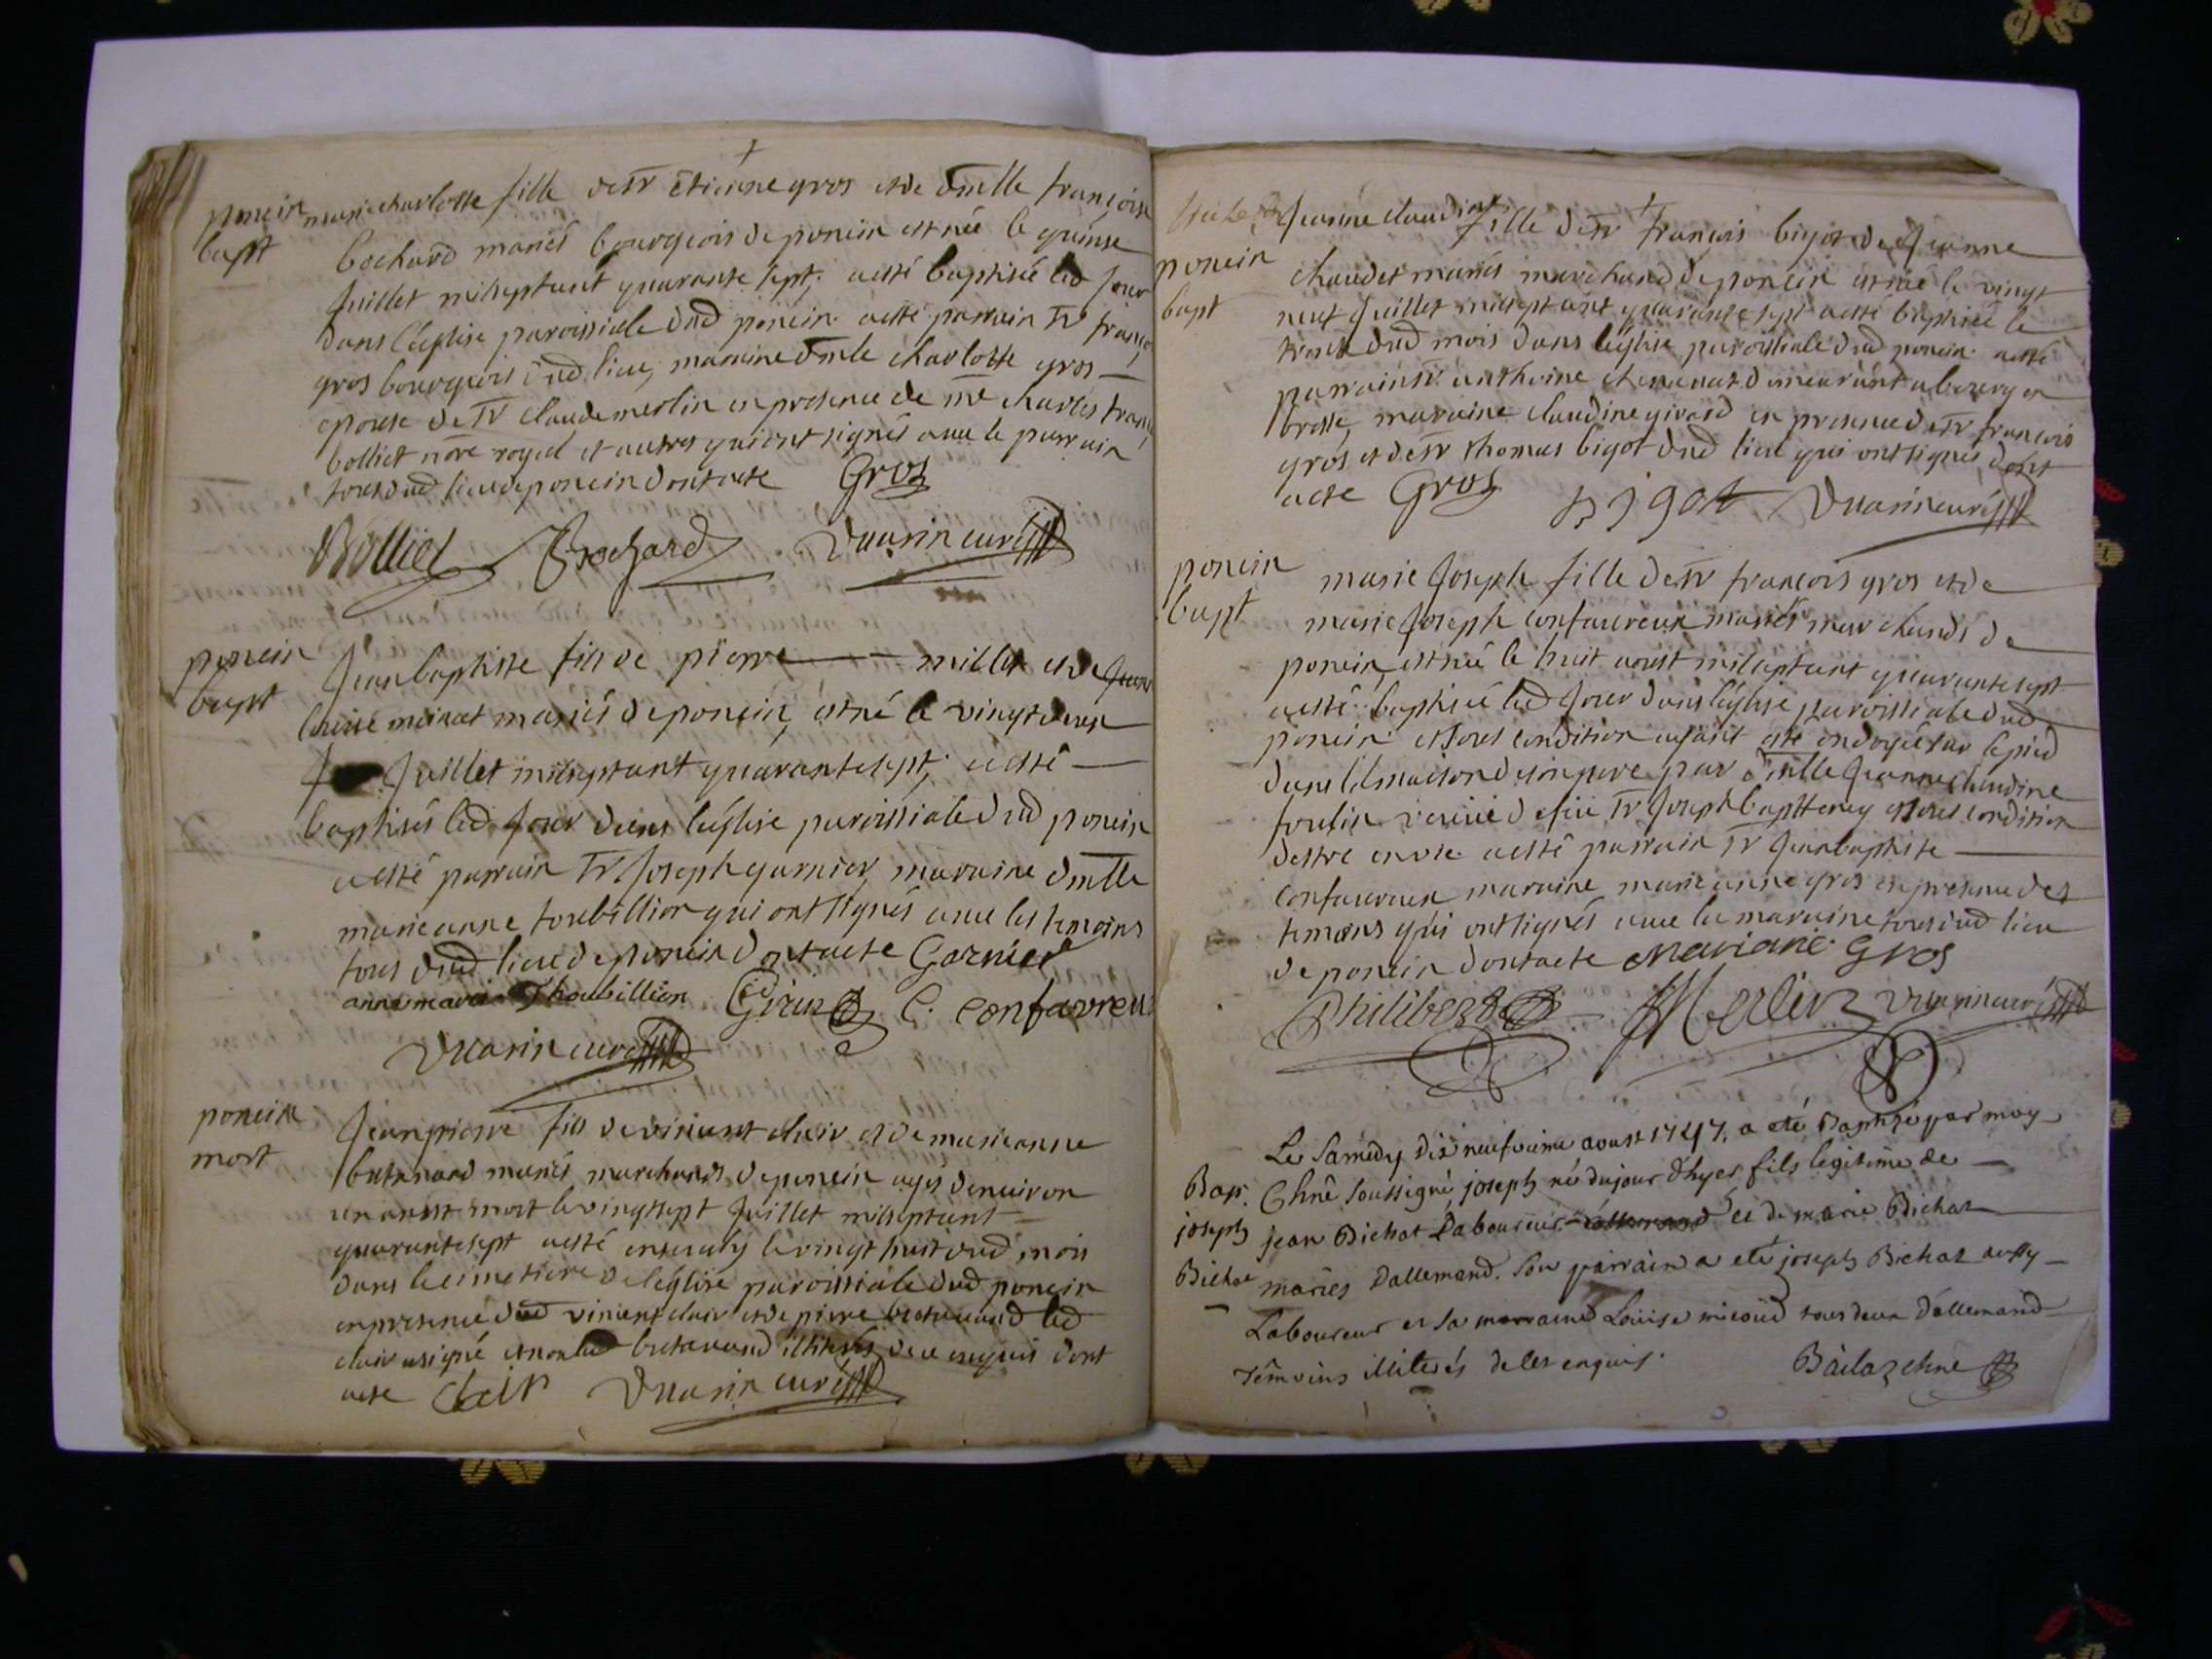 poncin
bapt
marie charlotte fille de sr étienne gros et de dmlle françoise
bochard mariés bourgeois de poncin est née le quinse
juillet milseptcent quarante sept, a esté baptisée led jour
dans l'église paroissiale dud poncin. a esté parrain sr franço
gros bourgeois dud lieu, maraine dmlle charlotte gros
épouse de sr claude merlin en presence de me charles franç
bolliet nore royal et autres qui ont signés avec le parrain
tous dud lieu de poncin dont acte Gros
Bolliet Bochard Vuarin curé
poncin
bapt
Jean baptiste fils de pierre millet et de jeanne
louise moinat mariés de poncin, est né le vingt deux
juillet milseptcent quarante sept, a esté
baptisés led jour dans l'église paroissiale dud poncin
a esté parrain sr Joseph garnier, maraine dmlle
marie anne toubillion qui ont signés avec les temoins
tous dud lieu de poncin dont acte Garnier
anne marie Thoubillion Girin C. Confavreu
Vuarin curé
poncin
mort
Jean pierre fils de vincent clair et de marie anne
bretanand mariés marchands de poncin agés denviron
un an est mort le vingt sept juillet milseptcent
quarante sept a esté ensevely le vingt huit dud mois
dans le cimetiere de l'église paroissiale dud poncin
en presence dud vincent clair et de pierre bretanand led
clair a signé et non led bretanand illiteré de ce enquis dont
acte Clair Vuarin curé
poncin
bapt
Jeanne claudine fille de sr françois bigot de Jeanne
chaudet mariés marchand de poncin est née le vingt
neuf juillet milsept cent quarante sept a esté baptisée le
trente dud mois dans l'église paroissiale dud poncin. a esté
parrain sr anthoine demeurant a bourg en
bresse, maraine claudine girard en presence de sr françois
gros et de sr thomas bigot dud lieu qui ont signés dont
acte Gros Bigot Vuarin curé
poncin
bapt
marie Joseph fille de sr françois gros et de
marie Joseph confavreux mariés marchands de
poncin, est née le huit aoust milseptcent quarante sept
a esté baptisée led jour dans l'église paroissiale dud
poncin et sous condition ayant esté ondoyée sur le pied
dans la maison de son pere par dmlle Jeanne claudine
veuve de feu sr Joseph et sous condition
destre en vie. a esté parrain sr Jean baptiste
confavreux maraine marie anne gros en presence des
temoins qui ont signés avec la maraine tous dud lieu
de poncin dont acte Mariane Gros
Philibert Merlin Vuarin curé
Bap.
joseph
Bichat
Le Samedy dix neufvieme aoust 1747. a eté Baptizé par moy
Chne soussigné, joseph né du jour d'hyer fils legitime de
jean Bichat Laboureur et de marie Bichat
mariés D'allemand. Son parrain a eté joseph Bichat aussy
Laboureur et sa marraine Louise micoud tous deux d'allemand
Témoins illiterés de les enquis. Bailaz chne